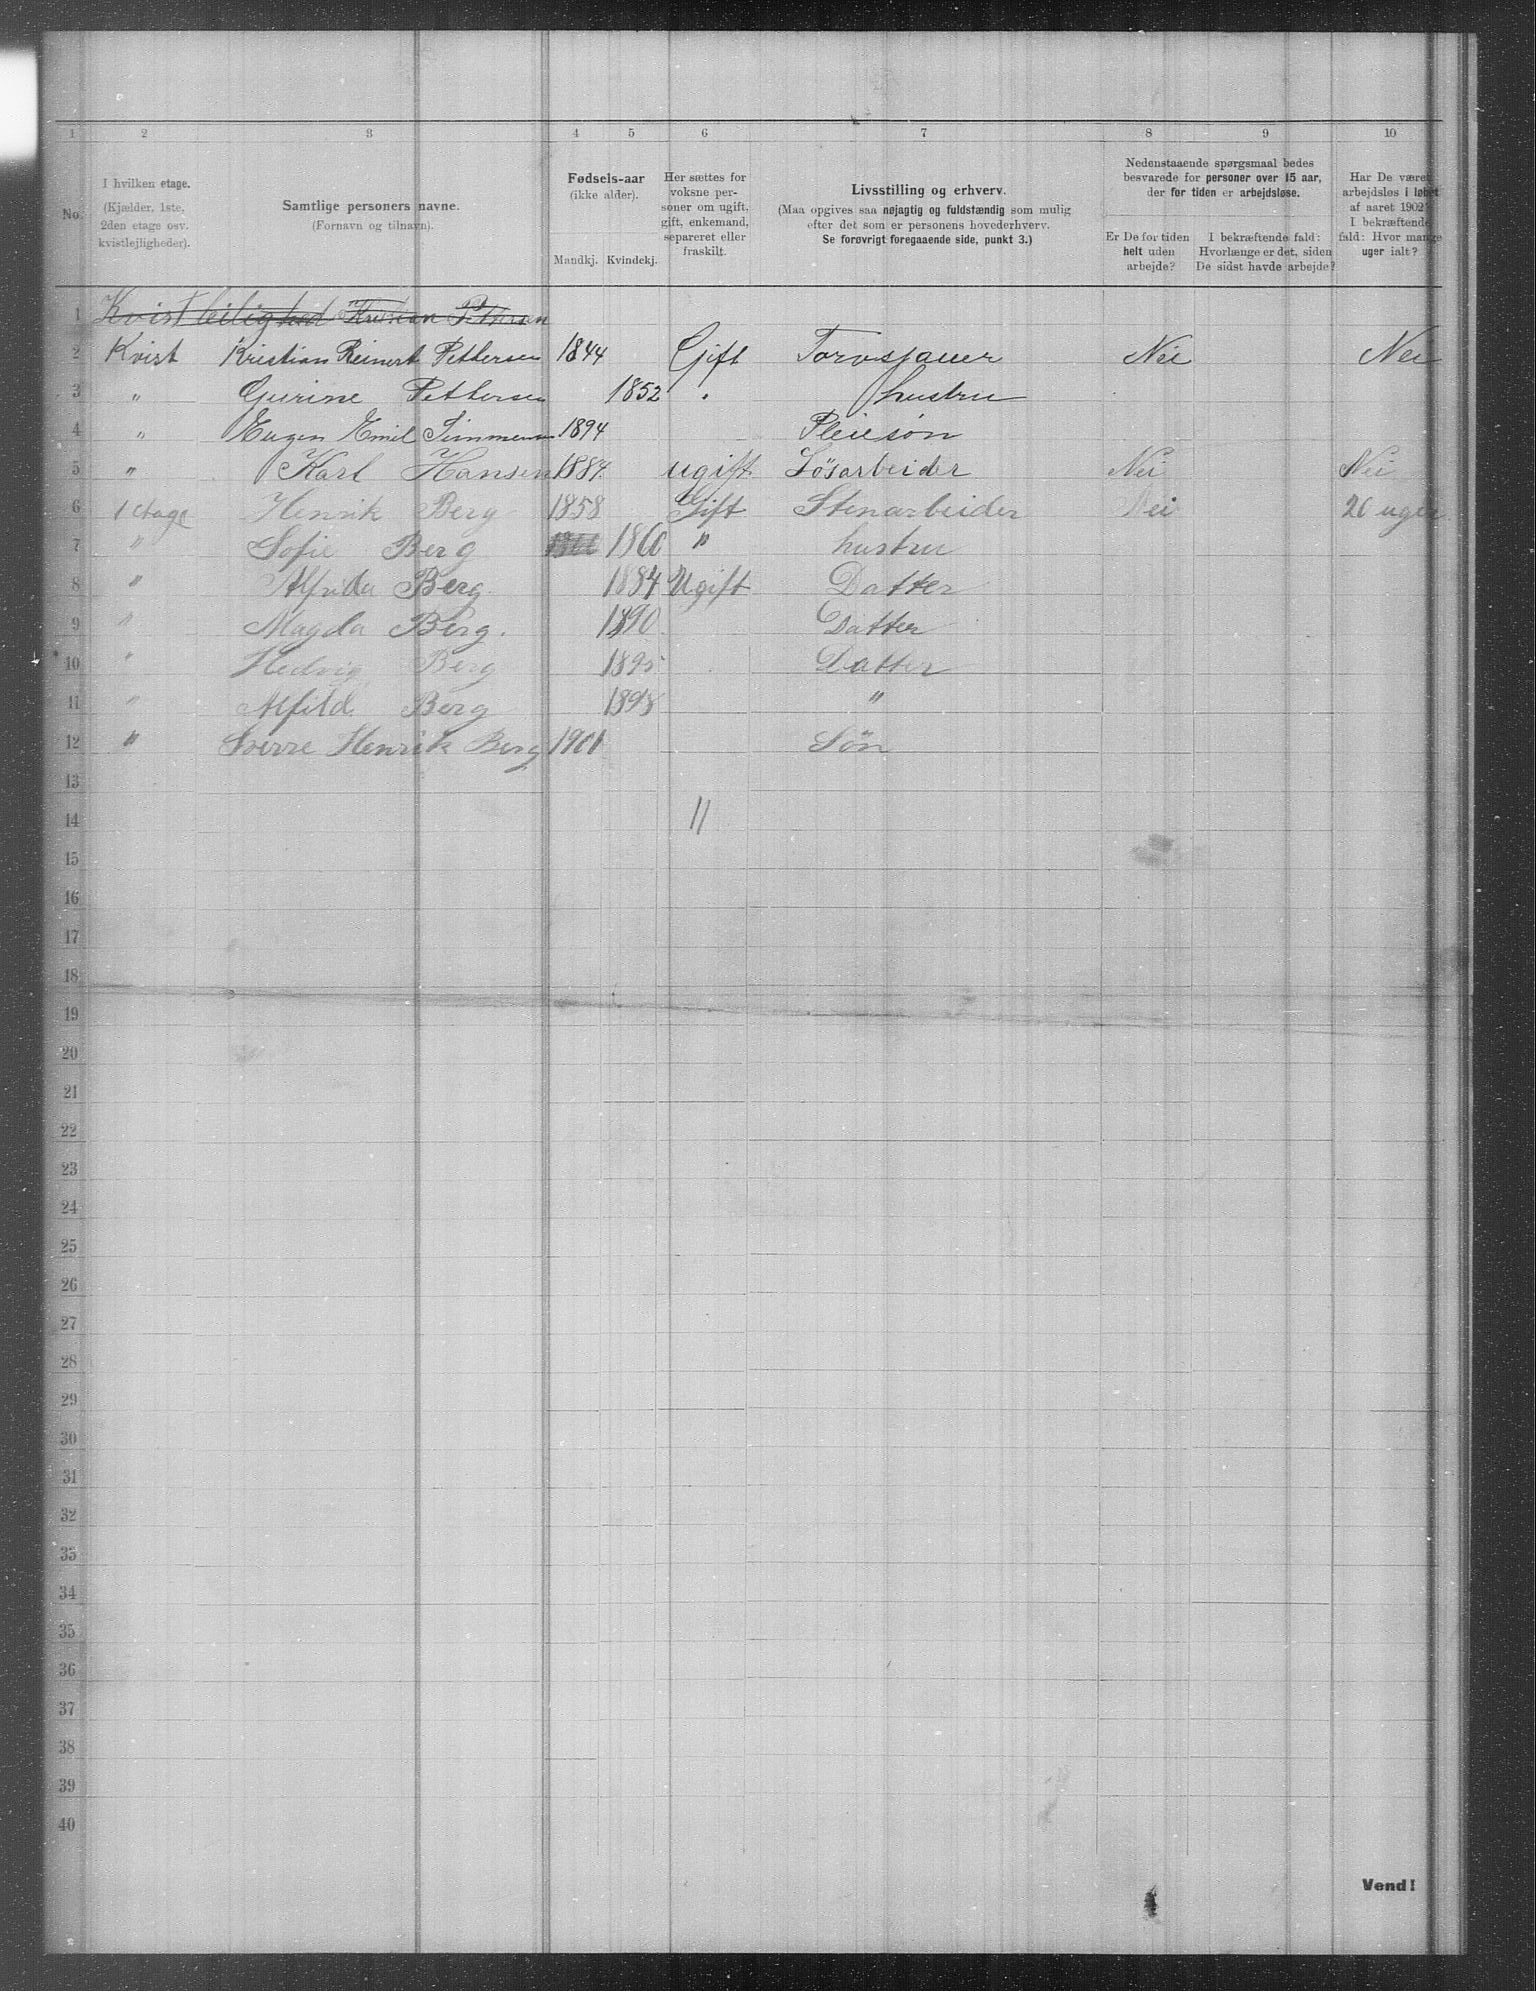 1 2 3 4 5 6 7 8 9 10
No.
I hvilken etage.
(Kjælder, 1ste,
2den etage osv.
kvistlejligheder).
Samtlige personers navne.
(Fornavn og tilnavn).
Fødsels-aar
(ikke alder).
Mandkj. Kvindekj.
Her sættes for
voksne per-
soner om ugift,
gift, enkemand,
separeret eller
fraskilt.
Livsstilling og erhverv.
(Maa opgives saa nøjagtig og fuldstændig som mulig
efter det som er personens hovederhverv.
Se forøvrigt foregaaende side, punkt 3.)
Nedenstaaende spørgsmaal bedes
besvarede for personer over 15 aar,
der for tiden er arbejdsløse.
Er De for tiden
helt uden
arbejde?
I bekræftende fald:
Hvorlænge er det, siden
De sidst havde arbejde?
Har De været
arbejdsløs i løbet
af aaret 1902?
I bekræftende
fald: Hvor mange
uger ialt?
1 Kvistleilighed Kristian Pettersen
2 Kvist Kristian Reinert Pettersen 1844 Gift Torvsjauer Nei Nei
3 " Gurine Pettersen 1852 " hustru
4 " Eugen Emil 1894 Pleiesøn
5 " Karl Hansen 1884 ugift Løsarbeider Nei Nei
6 1 etage Henrik Berg 1858 Gift Stenarbeider Nei 26 uger
7 " Sofie Berg 1860 " hustru
8 " Alfrida Berg. 1884 Ugift Datter
9 " Magda Berg. 1890 Datter
10 " Hedvig Berg 1895 Datter
11 " Alfild Berg 1898 "
12 " Sverre Henrik Berg 1901 Søn
13
14 11
15
16
17
18
19
20
21
22
23
24
25
26
27
28
29
30
31
32
33
34
35
36
37
38
39
40
Vend!